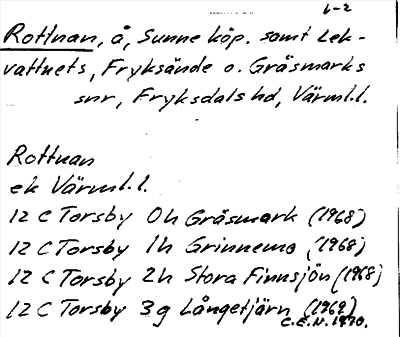 1-2
Rottnan, å, Sunne köp. samt Lek-
vattnets, Fryksände o. Gräsmarks
snr, Fryksdals hd, Värml. l.
Rottnan
ek Värml. l.
12 C Torsby 0h Gräsmark (1968)
12 C Torsby 1h Grinnemo (1968)
12 C Torsby 2h Stora Finnsjön (1968)
12 C Torsby 3g Långetjärn (1969)
C.E.N. 1970.